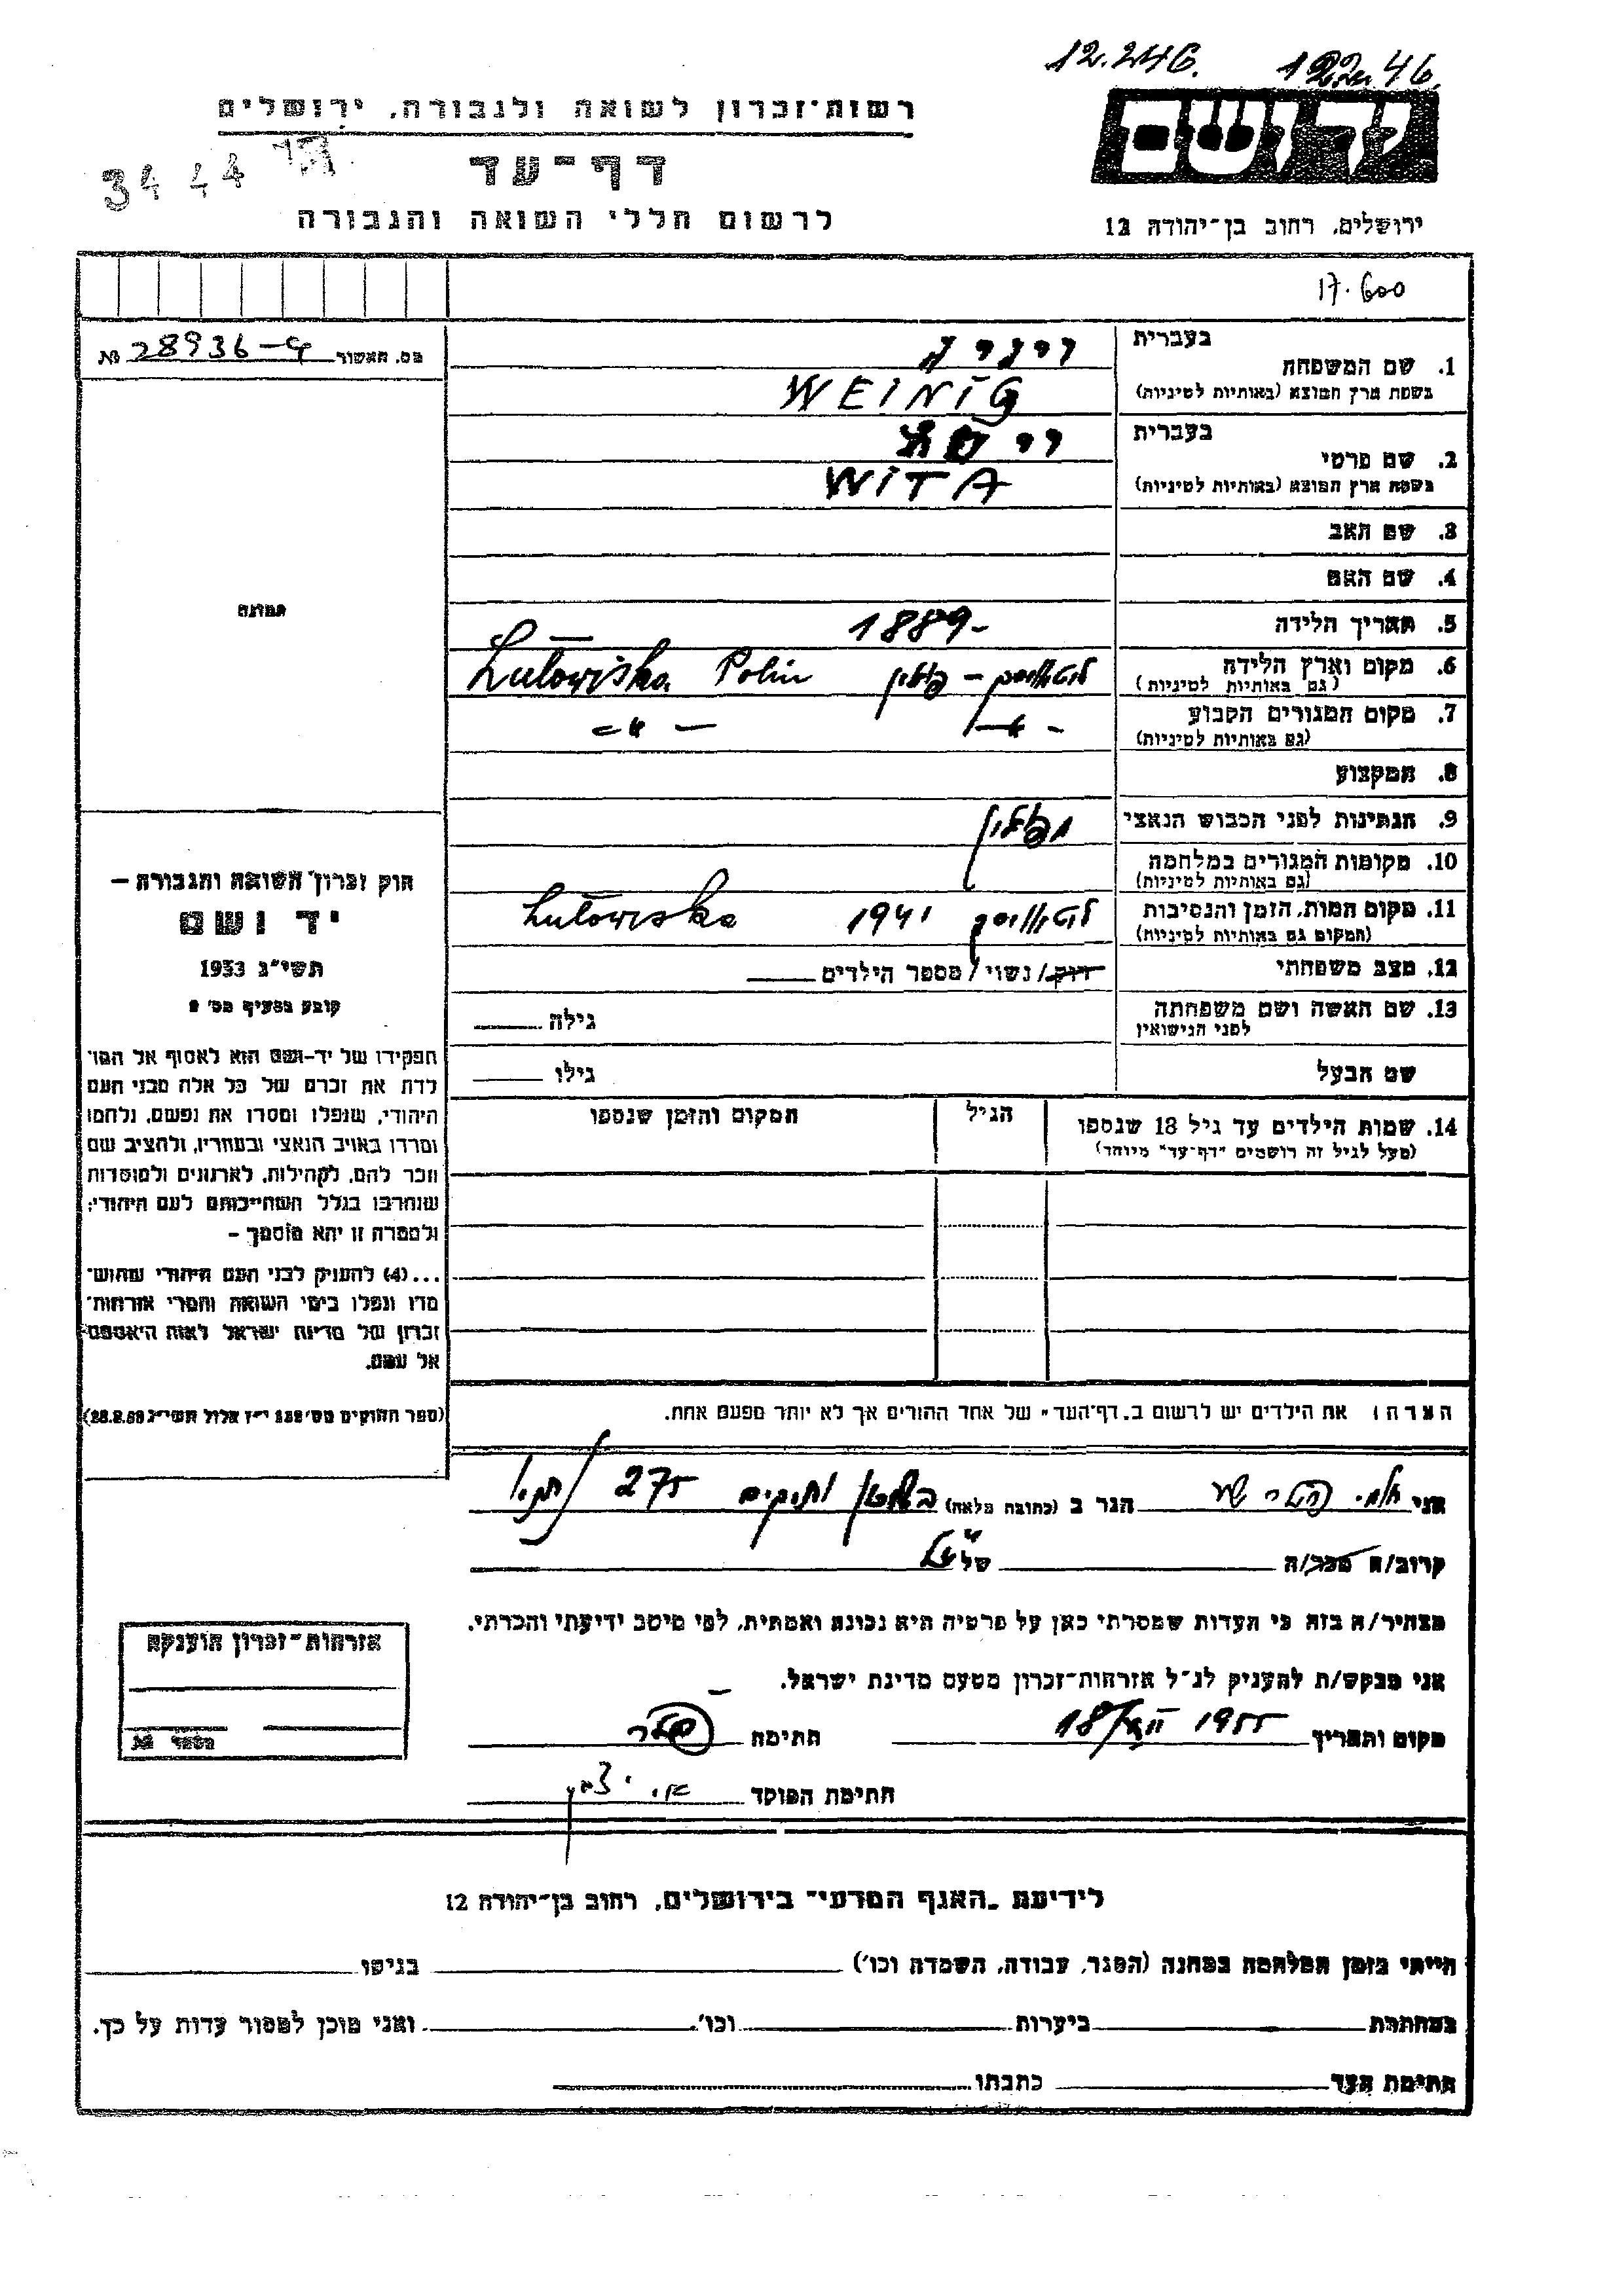 12.246.
רשות־זכרון לשואה ולגבורה, ירושלים
יד ושם
דף־עד
3444
לרשום חללי השואה והגבורה
ירושלים, רחוב בן־יהודה 12
17.600
מס. האשור 28936-G №
בעברית
1. שם המשפחה
בשפת ארץ המוצא (באותיות לטיניות)
WEINIG
בעברית
2. שם פרטי
בשפת ארץ המוצא (באותיות לטיניות)
WITA
3. שם האב
4. שם האם
תמונה
5. תאריך הלידה 1889-
6. מקום וארץ הלידה
(גם באותיות לטיניות)
Lutowiska Polin
7. מקום המגורים הקבוע
(גם באותיות לטיניות)
8. המקצוע
9. הנתינות לפני הכבוש הנאצי
10. מקומות המגורים במלחמה
(גם באותיות לטיניות)
11. מקום המות, הזמן והנסיבות
(המקום גם באותיות לטיניות)
1941 Lutowiska
12. מצב משפחתי רווק / נשוי / מספר הילדים
13. שם האשה ושם משפחתה
לפני הנישואין
גילה
שם הבעל גילו
14. שמות הילדים עד גיל 18 שנספו
(מעל לגיל זה רושמים "דף־עד" מיוחד)
הגיל
המקום והזמן שנספו
חוק זכרון השואה והגבורה –
יד ושם
תשי"ג 1953
קובע בסעיף מס' 2
תפקידו של יד־ושם הוא לאסוף אל המו־
לדת את זכרם של כל אלה מבני העם
היהודי, שנפלו ומסרו את נפשם, נלחמו
ומרדו באויב הנאצי ובעוזריו, ולהציב שם
וזכר להם, לקהילות, לארגונים ולמוסדות
שנחרבו בגלל השתייכותם לעם היהודי;
ולמטרה זו יהא מוסמך –
...(4) להעניק לבני העם היהודי שהוש־
מדו ונפלו בימי השואה והמרי אזרחות־
זכרון של מדינת ישראל לאות היאספם
אל עמם.
(ספר החוקים מס' 132 י"ז אלול תשי"ג 28.8.53)
הערה: את הילדים יש לרשום ב"דף־העד" של אחד ההורים אך לא יותר מפעם אחת.
אני הגר ב (כתובת מלאה) 275
קרוב/ה מכר/ה של
מצהיר/ה בזה כי העדות שמסרתי כאן על פרטיה היא נכונה ואמתית, לפי מיטב ידיעתי והכרתי.
אני מבקש/ת להעניק לנ"ל אזרחות־זכרון מטעם מדינת ישראל.
מקום ותאריך 1955 חתימה
חתימת הפוקד
אזרחות־זכרון הוענקה
מספר №
לידיעת "האגף המדעי" בירושלים, רחוב בן־יהודה 12
הייתי בזמן המלחמה במחנה (הסגר, עבודה, השמדה וכו') בגיטו
במחתרת ביערות וכו'. ואני מוכן למסור עדות על כך.
חתימת העד כתבתו